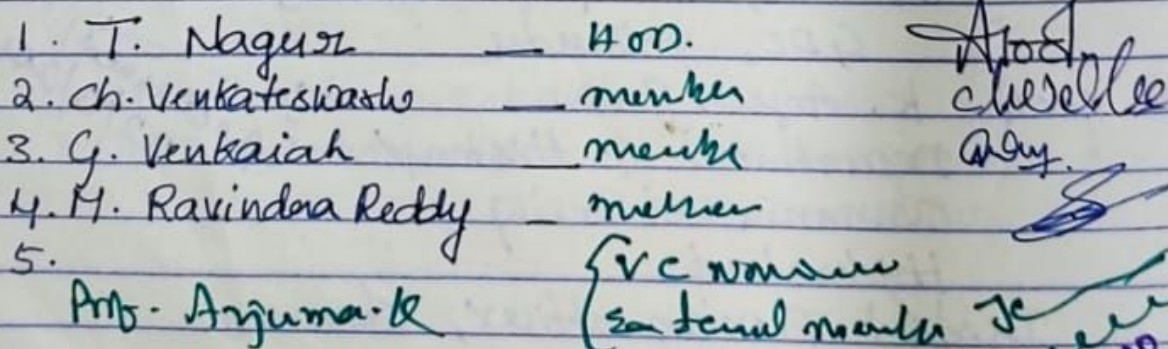 1. T. Nagur — HOD.
2. Ch. Venkateswarlu — member
3. G. Venkaiah — member
4. M. Ravindra Reddy — member
5. { VC nominee
Prof. Anjuma.K ( External member